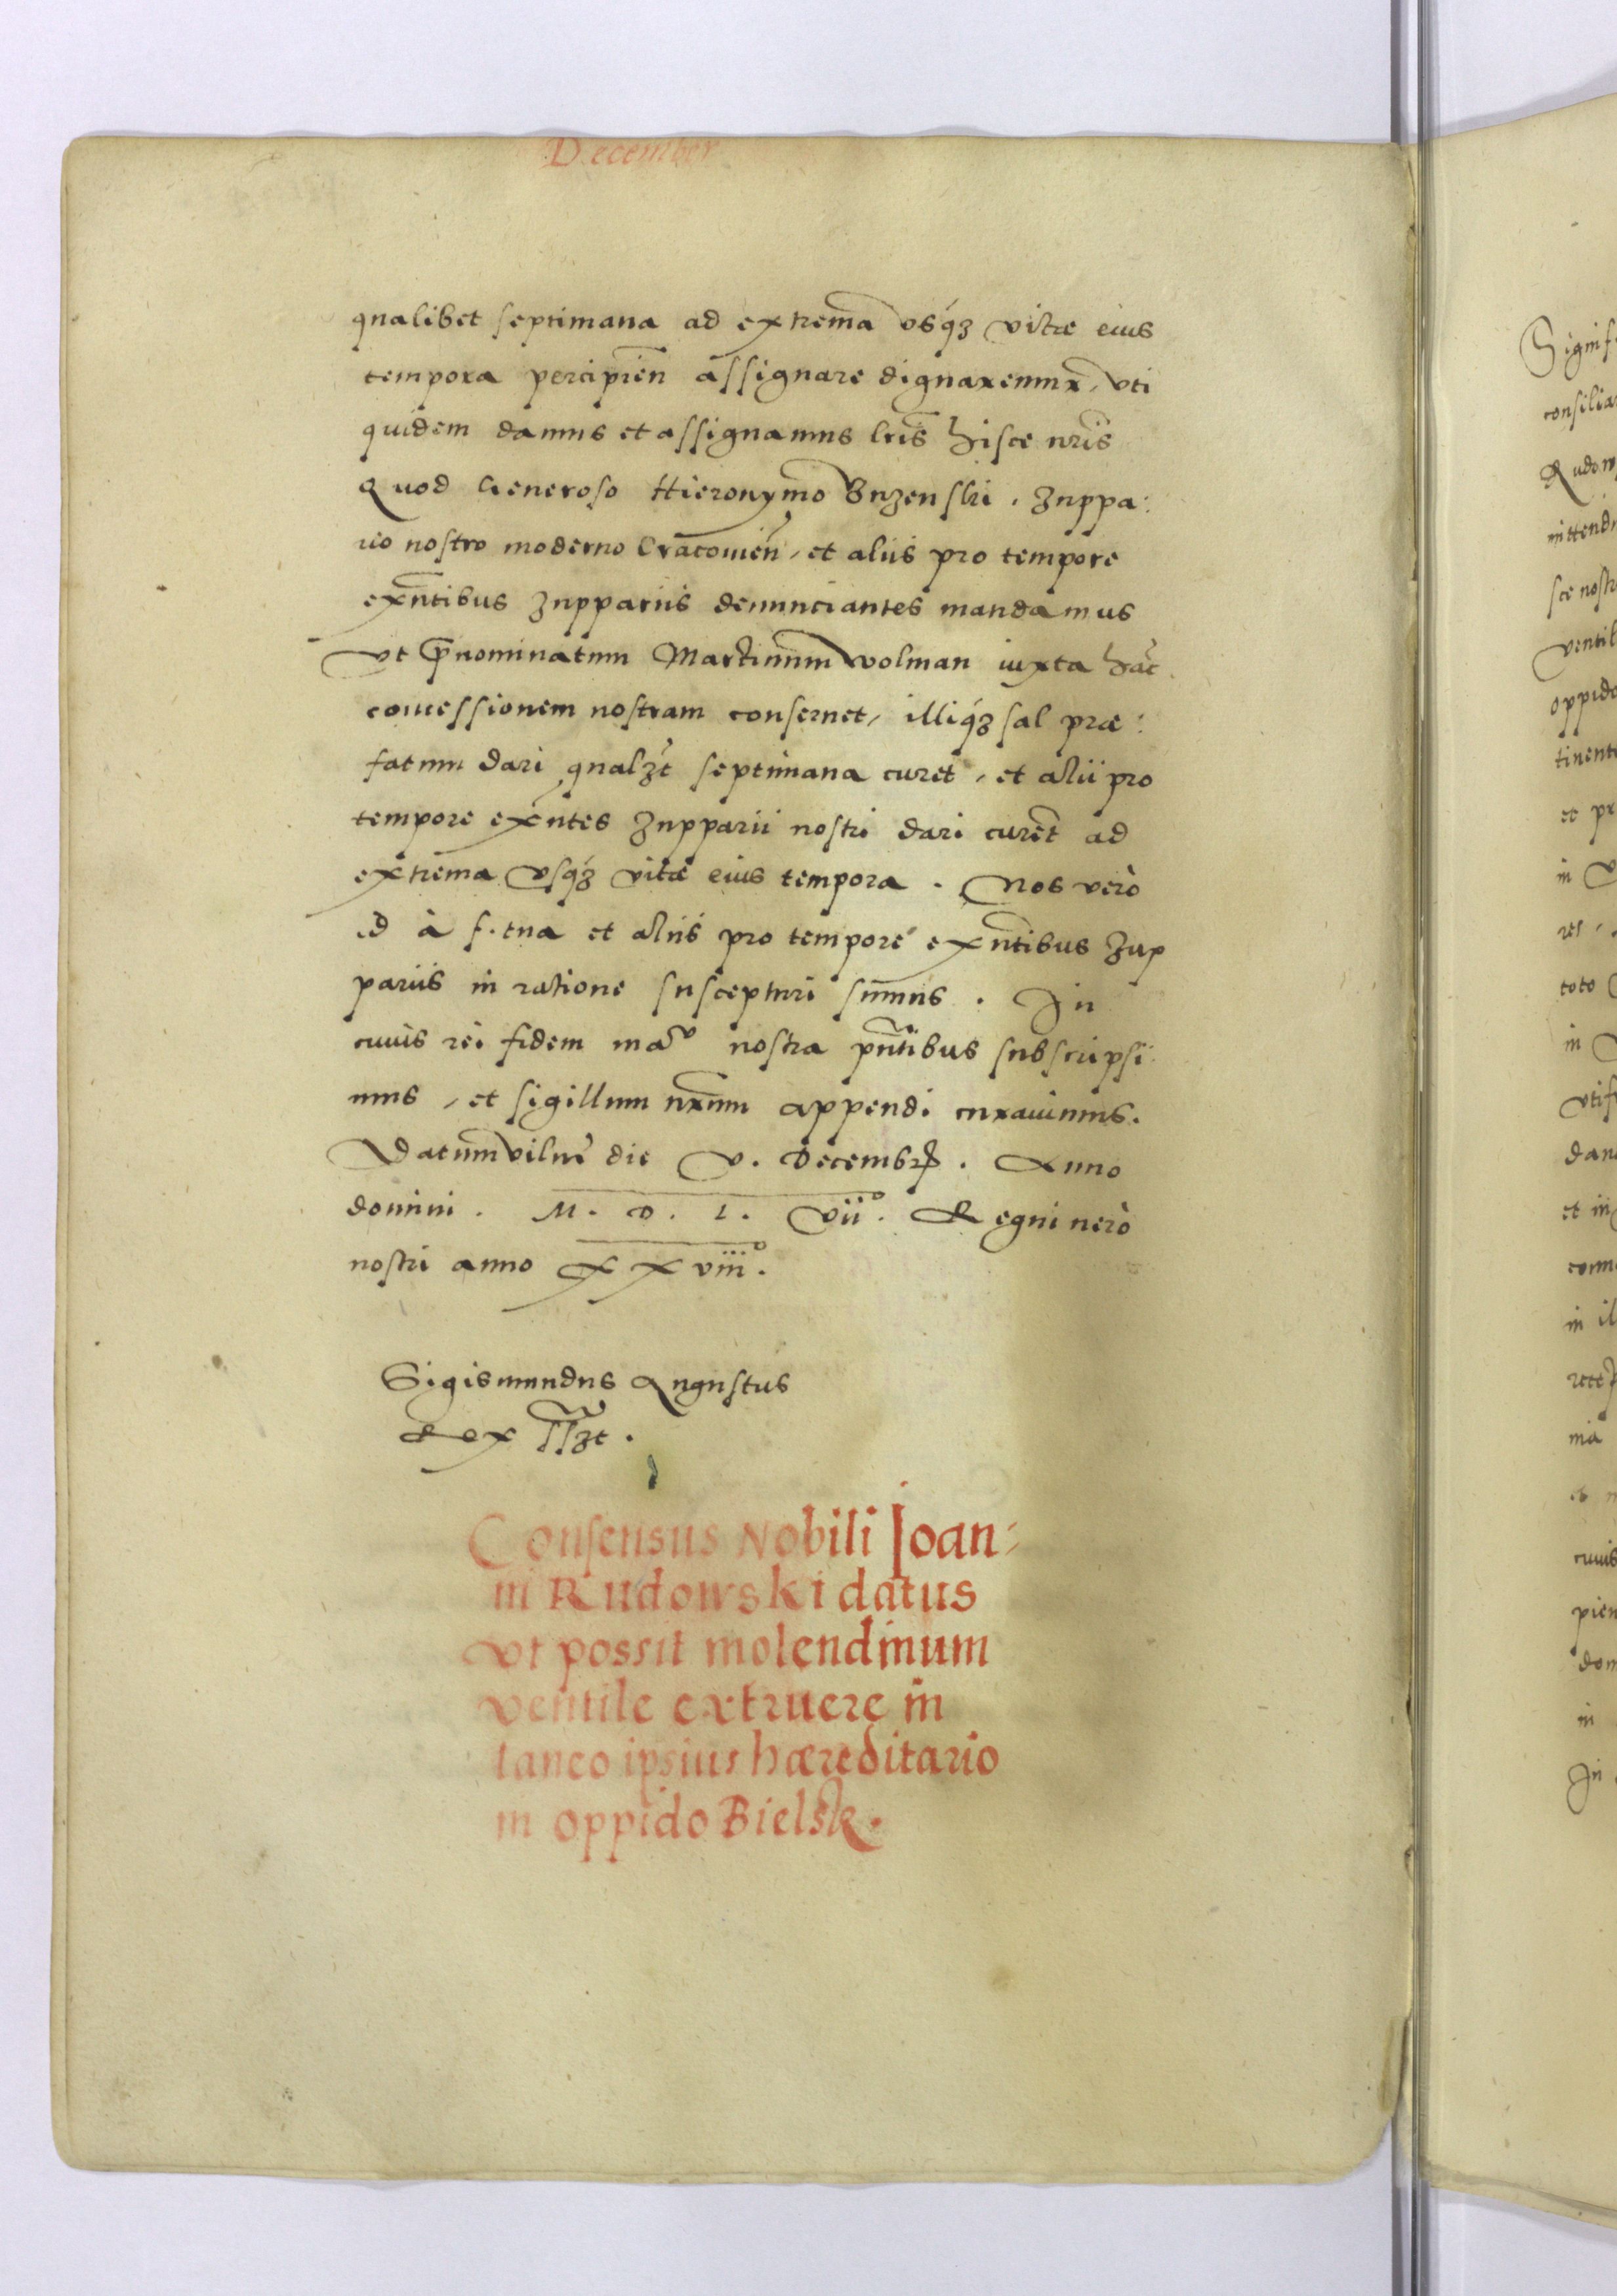 December
qualibet septimana ad extremā vsq́ȝ vitæ eius
tempora percipieñ assignare dignaremur, vti
quidem damus et assignamus lr̄is hisce nr̄is
Quod Generoso Hieronymo Buzenski. Zuppa:
rio nostro moderno Cracouieñ, et aliis pro tempore
exn̄tibus Zuppariis denunciantes mandamus
Vt p̄nominatum Martinum Wolman iuxta hāc
concessionem nostram conseruet, illiq́ȝ sal præ:
fatum dari qualȝt septimana curet, et alii pro
tempore exn̄tes Zupparii nostri dari curēt ad
extrema vsq́ȝ vitæ eius tempora. Nos verò
id à f. tua et aliis pro tempore exn̄tibus Zup
pariis in ratione suscepturi sumus. In
cuius rei fidem manu nostra pn̄tibus subscripsi:
mus, et sigillum nr̄um appendi curauimus.
Datum Vilnę die V. Decembr̄. Anno
domini. M. D. L. Vii°. Regni verò
nostri anno XX viii°.
Sigismundus Augustus
Rex ss̄ȝt.
Consensus Nobili Ioan-
ni Rudowski datus
vt possit molendinum
ventile extruere in
laneo ipsius hæreditario
in oppido Bielsk.
Signif
consilia
Rudow
mittend
sce nostr
ventil
oppido
tinent
et pr
in V
toto
in
vtif
dan
et in
comm
in il
cuius
pien
dom
in
In